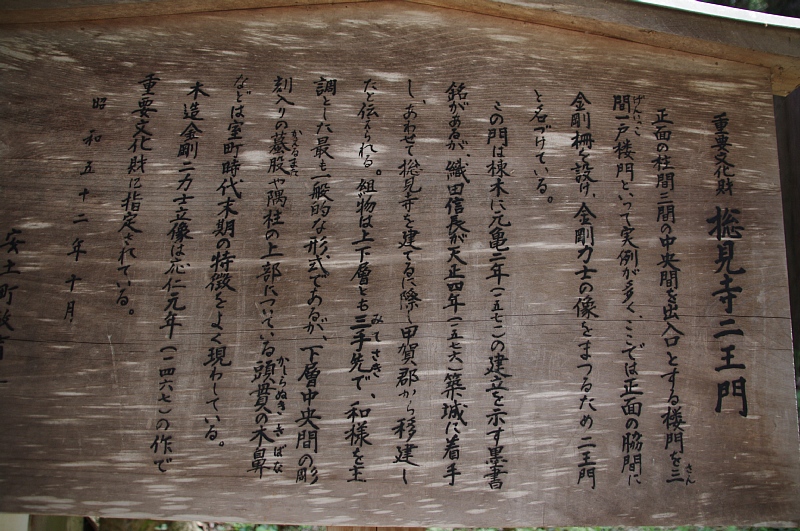 重要文化財 摠見寺二王門
正面の柱間三間の中央間を出入口とする楼門を三
間一戸楼門といって実例が多く、ここでは正面の脇間に
金剛柵を設け、金剛力士の像をまつるため二王門
と名づけている。
この門は棟木に元亀二年(一五七一)の建立を示す墨書
銘があるが、織田信長が天正四年(一五七六)築城に着手
し、あわせて摠見寺を建てるに際し甲賀郡から移建し
たと伝えられる。組物は上下層とも三手先で、和様を主
調とした最も一般的な形式であるが、下層中央間の彫
刻入りの蟇股や隅柱の上部についている頭貫の木鼻
などは室町時代末期の特徴をよく現わしている。
木造金剛二力士立像は応仁元年(一四六七)の作で
重要文化財に指定されている。
昭和五十二年十月
安土町教育